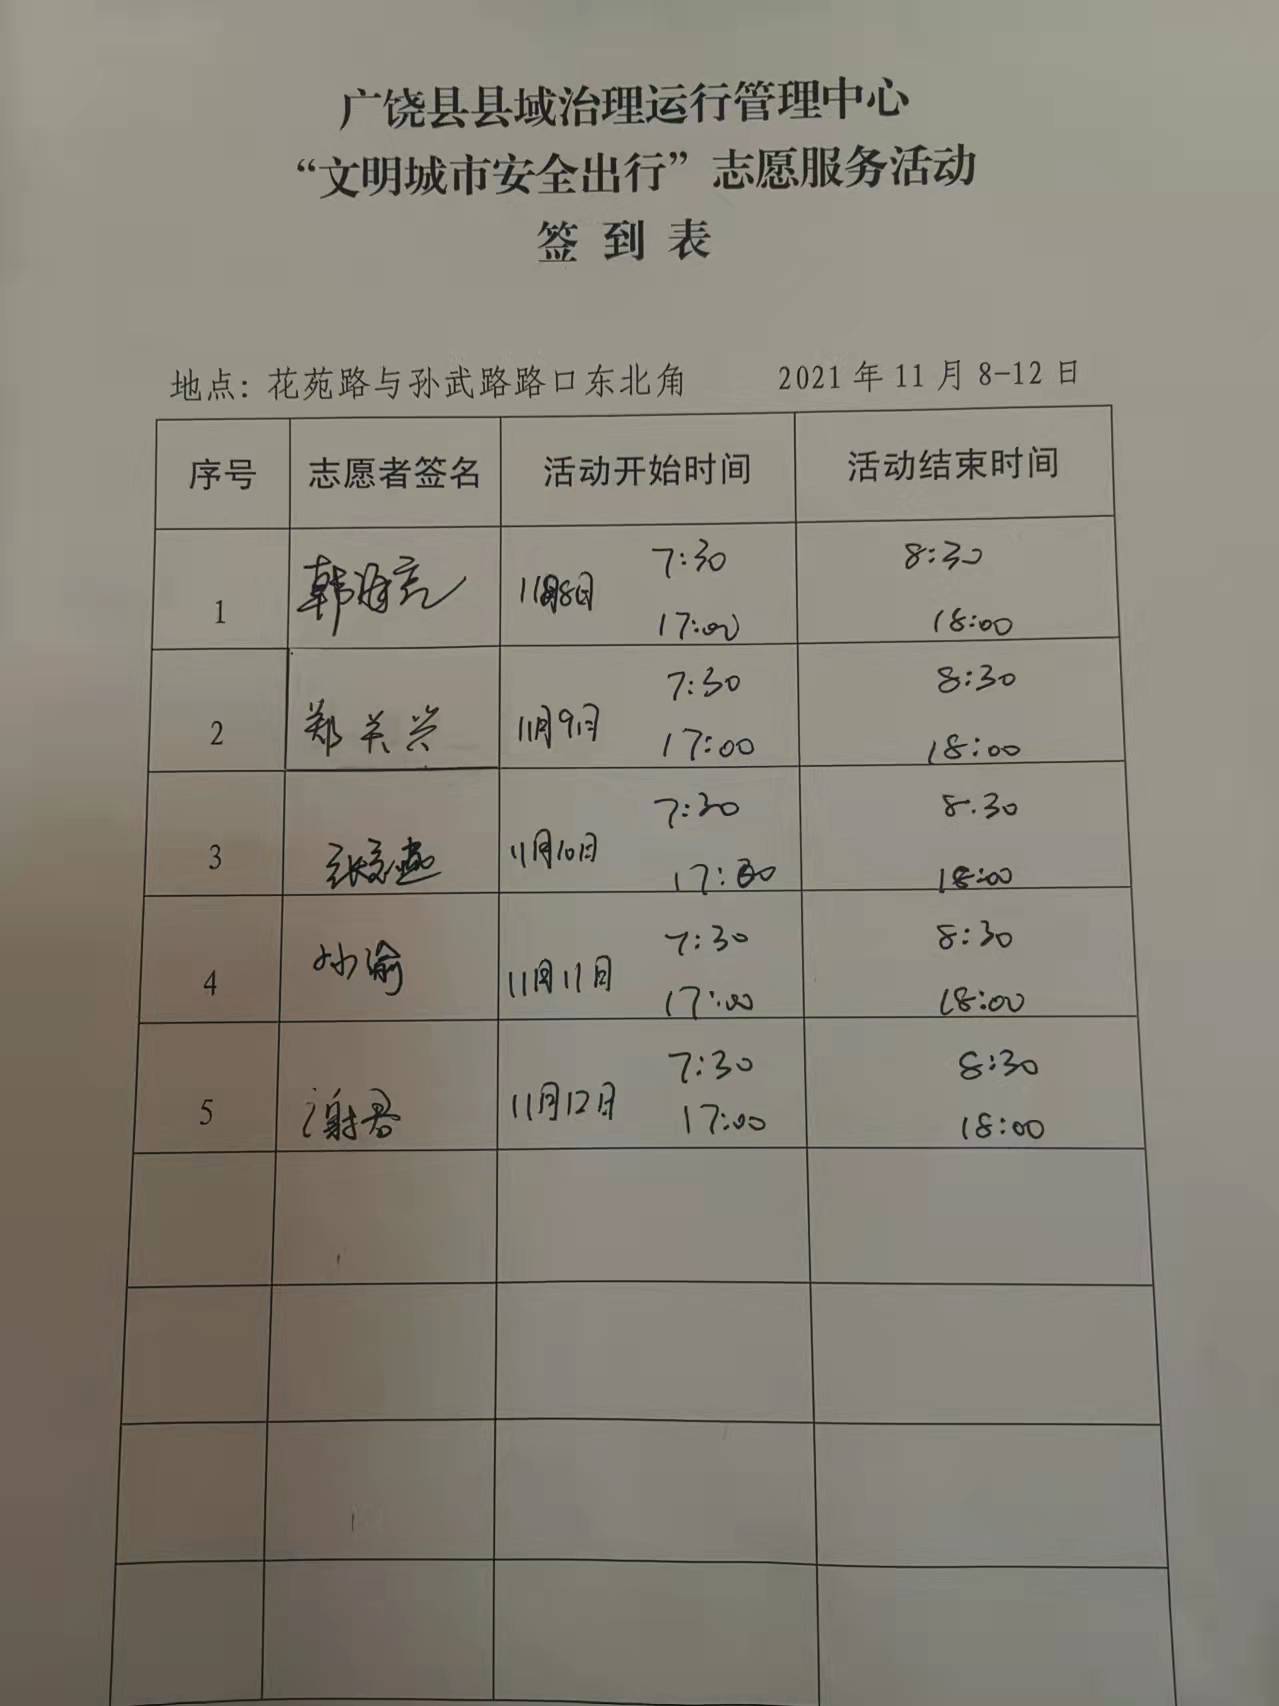 广饶县县域治理运行管理中心
“文明城市安全出行”志愿服务活动
签到表
地点：花苑路与孙武路路口东北角 2021年11月8-12日
序号 志愿者签名 活动开始时间 活动结束时间
7:30 8:30
1 11月8日
17:00 18:00
7:30 8:30
2 郑关兴 11月9日
17:00 18:00
7:30 8:30
3 11月10日
18:00
7:30 8:30
4 孙渝 11月11日
17:00 18:00
7:30 8:30
5 谢君 11月12日
17:00 18:00